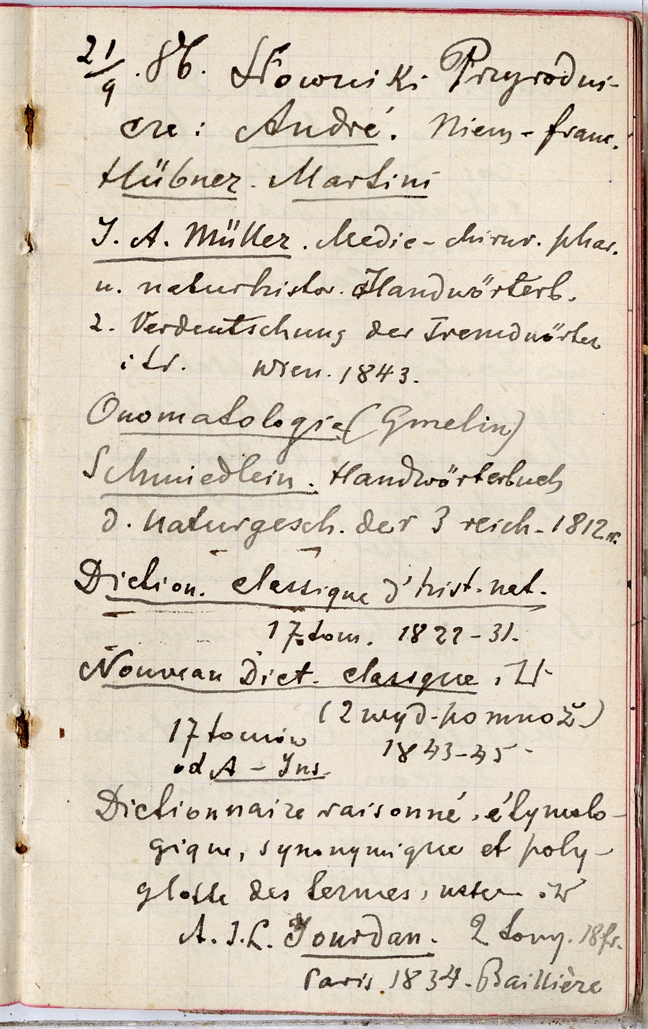 21/9 .86. Słowniki Przyrodni-
cze: André. Niem-franc.
Hübner. Martini
J. A. Müller. Medic-chirur. phar.
u. naturhistor. Handwörterb.
2. Verdeutschung der Fremdwörter
Wien. 1843.
Onomatologia (Gmelin)
Schmiedlein. Handwörterbuch
d. Naturgesch. der 3 reich. 1812 r.
Diction. classique d'hist. nat.
17 tom. 1822-31.
Nouveau Dict. classique
(2 wyd. pomnoż)
17 tomów 1843-45
od A - Ins.
Dictionnaire raisonné, étymolo-
gique, synonymique et poly-
glotte des termes,
A. J. L. Jourdan. 2 tomy. 18 fr.
Paris 1834. Baillière